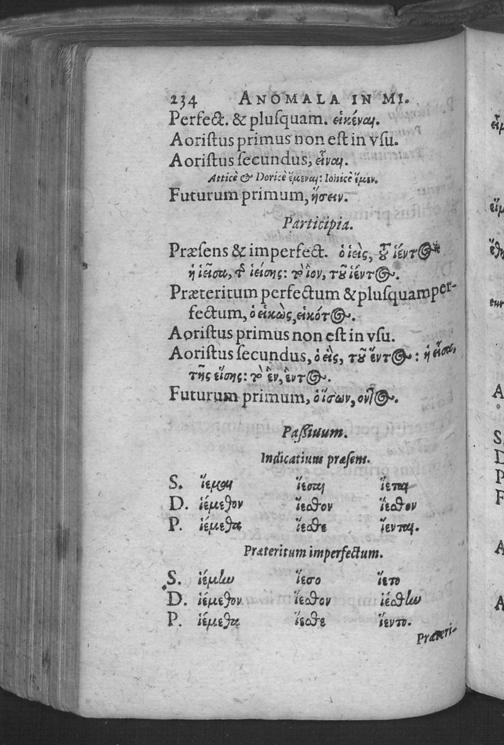 234 ANOMALA IN MI.
Perfect. & pluſquam. εἰκέναι.
Aoriſtus primus non eſt in vſu.
Aoriſtus ſecundus, εἶναι.
Atticè & Doricè ἕμεναι: Ionicè ἕμεν.
Futurum primum, ἥσειν.
Participia.
Præſens & imperfect. ὁ ἱεὶς, τοῦ ἱέντος
ἡ ἱεῖσα, τῆς ἱείσης: τὸ ἱὲν, τοῦ ἱέντος.
Præteritum perfectum & pluſquamper-
fectum, ὁ εἱκὼς, εἱκότος.
Aoriſtus primus non eſt in vſu.
Aoriſtus ſecundus, ὁ εἳς, τοῦ ἕντος: ἡ εἷσα,
τῆς εἵσης: τὸ ἓν, ἕντος.
Futurum primum, ὁ ἥσων, οντος.
Paſſiuum.
Indicatiuum præſens.
S. ἵεμαι ἵεσαι ἵεται
D. ἱέμεθον ἵεσθον ἵεσθον
P. ἱέμεθα ἵεσθε ἵενται.
Præteritum imperfectum.
S. ἱέμην ἵεσο ἵετο
D. ἱέμεθον ἵεσθον ἱέσθην
P. ἱέμεθα ἵεσθε ἵεντο.
Præteri-